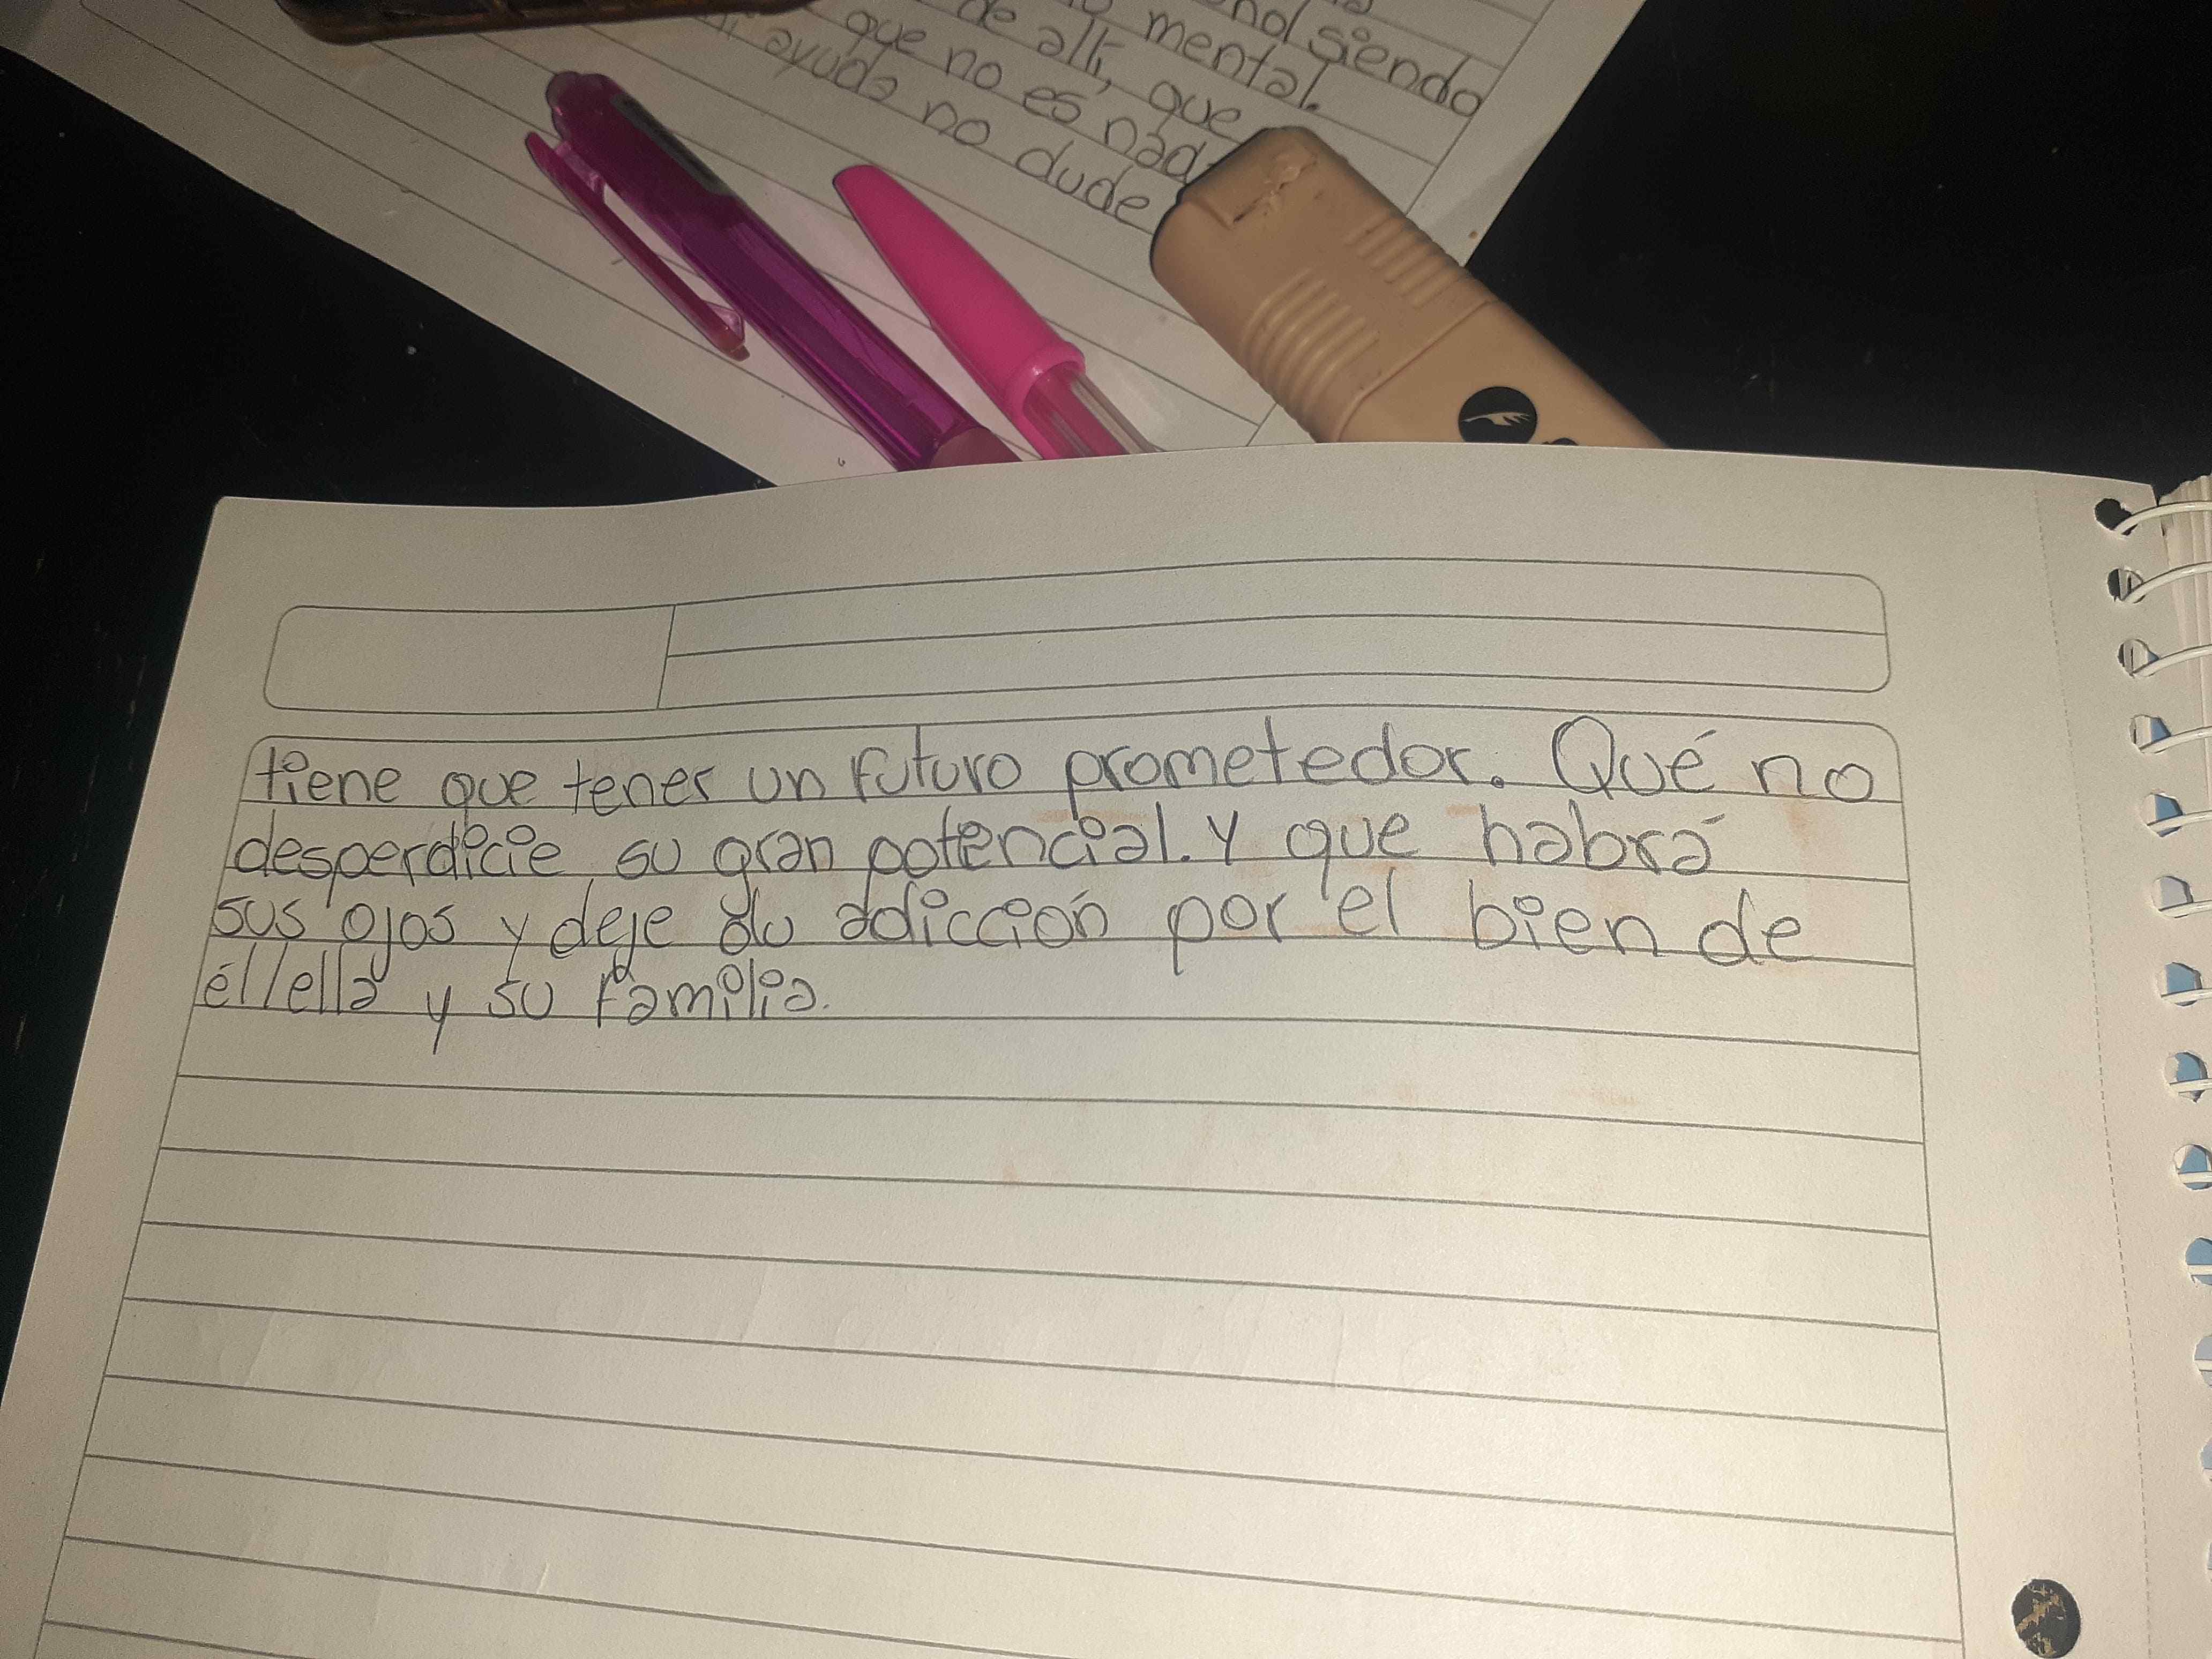 nol siendo
mental.
de allí, que
que no es nad
ayuda no dude
tiene que tener un futuro prometedor. Qué no
desperdicie su gran potencial. Y que habrá
sus ojos y deje su adicción por el bien de
él/ella y su familia.